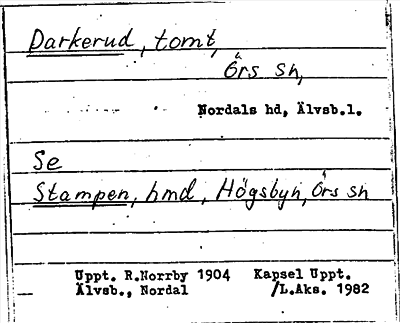 Darkerud, tomt,
Örs sn,
Nordals hd, Älvsb.l.
Se
Stampen, hmd, Högsbyn, Örs sn
Uppt. R.Norrby 1904 Kapsel Uppt.
Älvsb., Nordal /L.Aks. 1982